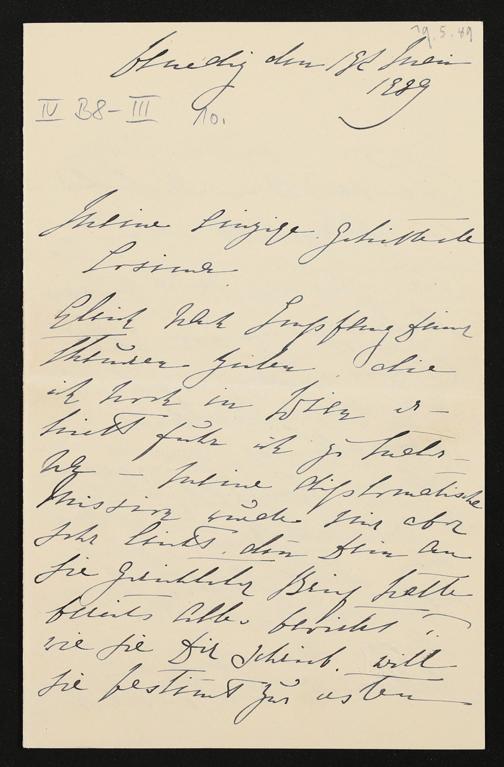 19.5.89
Venedig den 19t Mai
1889
IV B8-III 10.
Meine einzige geliebteste
Cosima
Gleich nach Empfang Deiner
theuren Zeilen die
ich noch in Wien er-
hielt fuhr ich zu
– Meine diplomatische
Mission wurde mir aber
sehr leicht, denn Dein an
sie gerichteter Brief hatte
bereits alles bewirkt
wie sie Dir schrieb. will
sie bestimt zur ersten